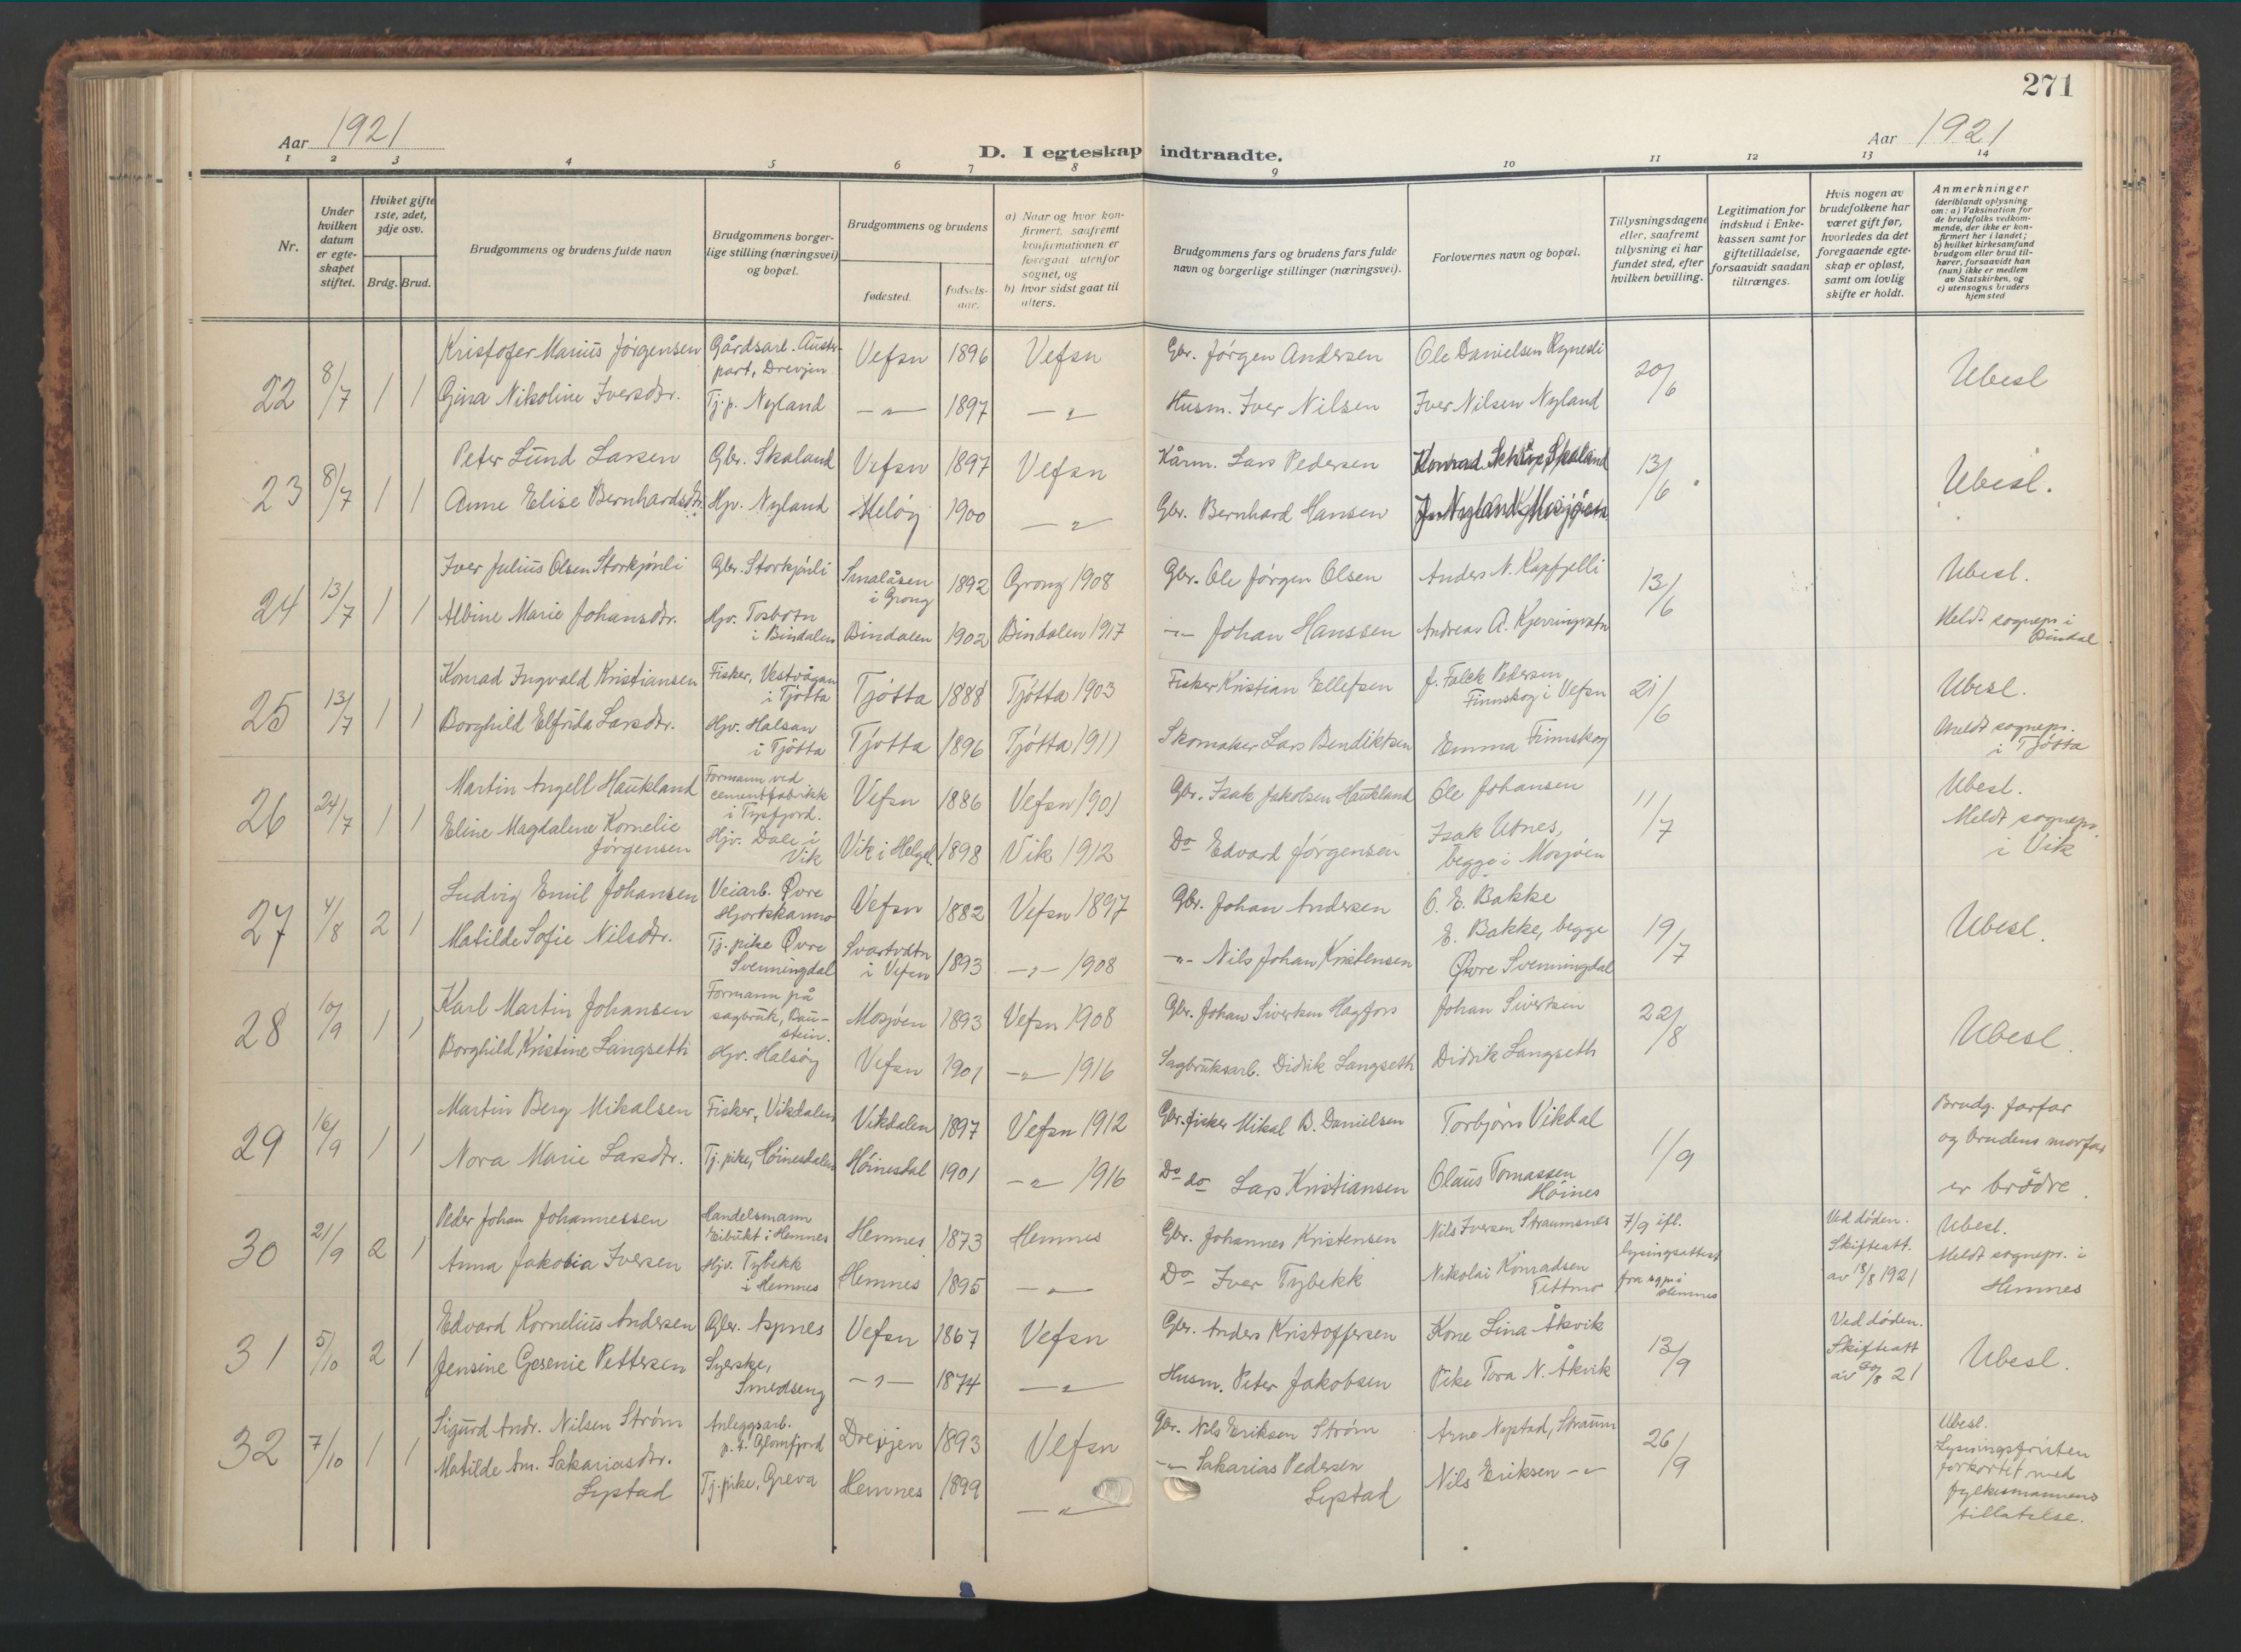 271
Aar 1921
D. I egteskap indtraadte.
Aar 1921
1 2 3 4 5 6 7 8 9 10 11 12 13 14
Nr.
Under hvilken datum er egteskapet stiftet.
Hviket gifte 1ste, 2det, 3dje osv.
Brdg. Brud.
Brudgommens og brudens fulde navn
Brudgommens borgerlige stilling (næringsvei) og bopæl.
Brudgommens og brudens
fødested.
fødselsaar.
a) Naar og hvor konfirmert, saafremt konfirmationen er foregaat utenfor sognet, og
b) hvor sidst gaat til alters.
Brudgommens fars og brudens fars fulde navn og borgerlige stillinger (næringsvei).
Forlovernes navn og bopæl.
Tillysningsdagene eller, saafremt tillysning ei har fundet sted, efter hvilken bevilling.
Legitimation for indskud i Enkekassen samt for giftetilladelse, forsaavidt saadan tiltrænges.
Hvis nogen av brudefolkene har været gift før, hvorledes da det foregaaende egteskap er opløst, samt om lovlig skifte er holdt.
Anmerkninger (deriblandt oplysning om: a) Vaksination for de brudefolks vedkommende, der ikke er konfirmert her i landet; b) hvilket kirkesamfund brudgom eller brud tilhører, forsaavidt han (hun) ikke er medlem av Statskirken, og c) utensogns bruders hjemsted
22 8/7 1 1
Kristofer Marius Jørgensen Gårdsarb. Austerpart, Drevjen Vefsn 1896 Vefsn Gbr. Jørgen Andersen Ole Danielsen Rynesli 20/6 Ubesl
Gina Nikoline Iversdtr. Tj. p. Nyland -"- 1897 -"- Husm. Iver Nilsen Iver Nilsen Nyland
23 8/7 1 1
Peter Lund Larsen Gbr. Skaland Vefsn 1897 Vefsn Kårm. Lars Pedersen Konrad Skaland 13/6 Ubesl.
Anne Elise Bernhardsdtr. Hjv. Nyland Meløy 1900 -"- Gbr. Bernhard Hansen Nyland Mosjøen
24 13/7 1 1
Iver Julius Olsen Storkjønli Gbr. Storkjønli Smalåsen i Grong 1892 Grong 1908 Gbr. Ole Jørgen Olsen Anders N. Kapfjelli 13/6 Ubesl.
Albine Marie Johansdtr. Hjv. Tosbotn i Bindalen Bindalen 1902 Bindalen 1917 -"- Johan Hanssen Andreas A. Kjerringvatn Meldt sognepr. i Bindal
25 13/7 1 1
Konrad Ingvald Kristiansen Fisker, Vestvågan i Tjøtta Tjøtta 1888 Tjøtta 1903 Fisker Kristian Ellefsen J. Falck Pedersen Finnskog i Vefsn 21/6 Ubesl.
Borghild Elfrida Larsdtr. Hjv. Halsan i Tjøtta Tjøtta 1896 Tjøtta 1911 Skomaker Lars Bendiktsen Emma Finnskog Meldt sognepr. i Tjøtta
26 24/7 1 1
Martin Angell Haukland Formann ved cementfabrikk i Tysfjord. Vefsn 1886 Vefsn 1901 Gbr. Isak Jakobsen Haukland Ole Johansen 11/7 Ubesl.
Eline Magdalene Kornelie Jørgensen Hjv. Dale i Vik Vik i Helgel. 1898 Vik 1912 Do Edvard Jørgensen Isak Utnes, begge i Mosjøen Meldt sognepr. i Vik
27 4/8 2 1
Ludvig Emil Johansen Veiarb. Øvre Hjortskarmo Vefsn 1882 Vefsn 1897 Gbr. Johan Andersen O. E. Bakke 19/7 Ubesl.
Matilde Sofie Nilsdtr. Tj. pike Øvre Svenningdal Svartvatn i Vefsn 1893 -"- 1908 -"- Nils Johan Kristensen E. Bakke, begge Øvre Svenningdal
28 10/9 1 1
Karl Martin Johansen Formann på sagbruk, Baustein. Mosjøen 1893 Vefsn 1908 Gbr. Johan Sivertsen Hagfors Johan Sivertsen 22/8 Ubesl.
Borghild Kristine Langseth Hjv. Halsøy Vefsn 1901 -"- 1916 Sagbruksarb. Didrik Langseth Didrik Langseth
29 16/9 1 1
Martin Berg Mikalsen Fisker, Vikdalen Vikdalen 1897 Vefsn 1912 Gbr. fisker Mikal B. Danielsen Torbjørn Vikdal 1/9 Brudg. farfar og brudens morfar er brødre.
Nora Marie Larsdtr. Tj. pike, Høinesdalen Høinesdal 1901 -"- 1916 Do do Lars Kristiansen Olaus Tomassen Høines
30 21/9 2 1
Peder Johan Johannessen Handelsmann Eibukt i Hemnes Hemnes 1873 Hemnes Gbr. Johannes Kristensen Nils Iversen Straumsnes 7/9 ifl. lysingsattest fra sgpr i Hemnes Ved døden. Skifteatt. av 18/8 1921 Ubesl.
Anna Jakobia Iversen Hjv. Tybekk i Hemnes Hemnes 1895 -"- Do Iver Tybekk Nikolai Konradsen Tettmo Meldt sognepr. i Hemnes
31 5/10 2 1
Edvard Kornelius Andersen Gbr. Aspnes Vefsn 1867 Vefsn Gbr. Anders Kristoffersen Kone Lina Åkvik 13/9 Ved døden. Skifteatt av 30/8 21 Ubesl.
Jensine Gesenie Pettersen Syerske, Smedseng -"- 1874 -"- Husm. Peter Jakobsen Pike Tora N. Åkvik
32 7/10 1 1
Sigurd Andr. Nilsen Strøm Anleggsarb. p. t. Glomfjord Drevjen 1893 Vefsn Gbr. Nils Eriksen Strøm Arne Nystad, Straum 26/9 Ubesl. Lysningsfristen forkortet med fylkesmannens tillatelse.
Matilde Am. Sakariasdtr. Lystad Tj. pike, Greva Hemnes 1899 -"- -"- Sakarias Pedersen Lystad Nils Eriksen -"-